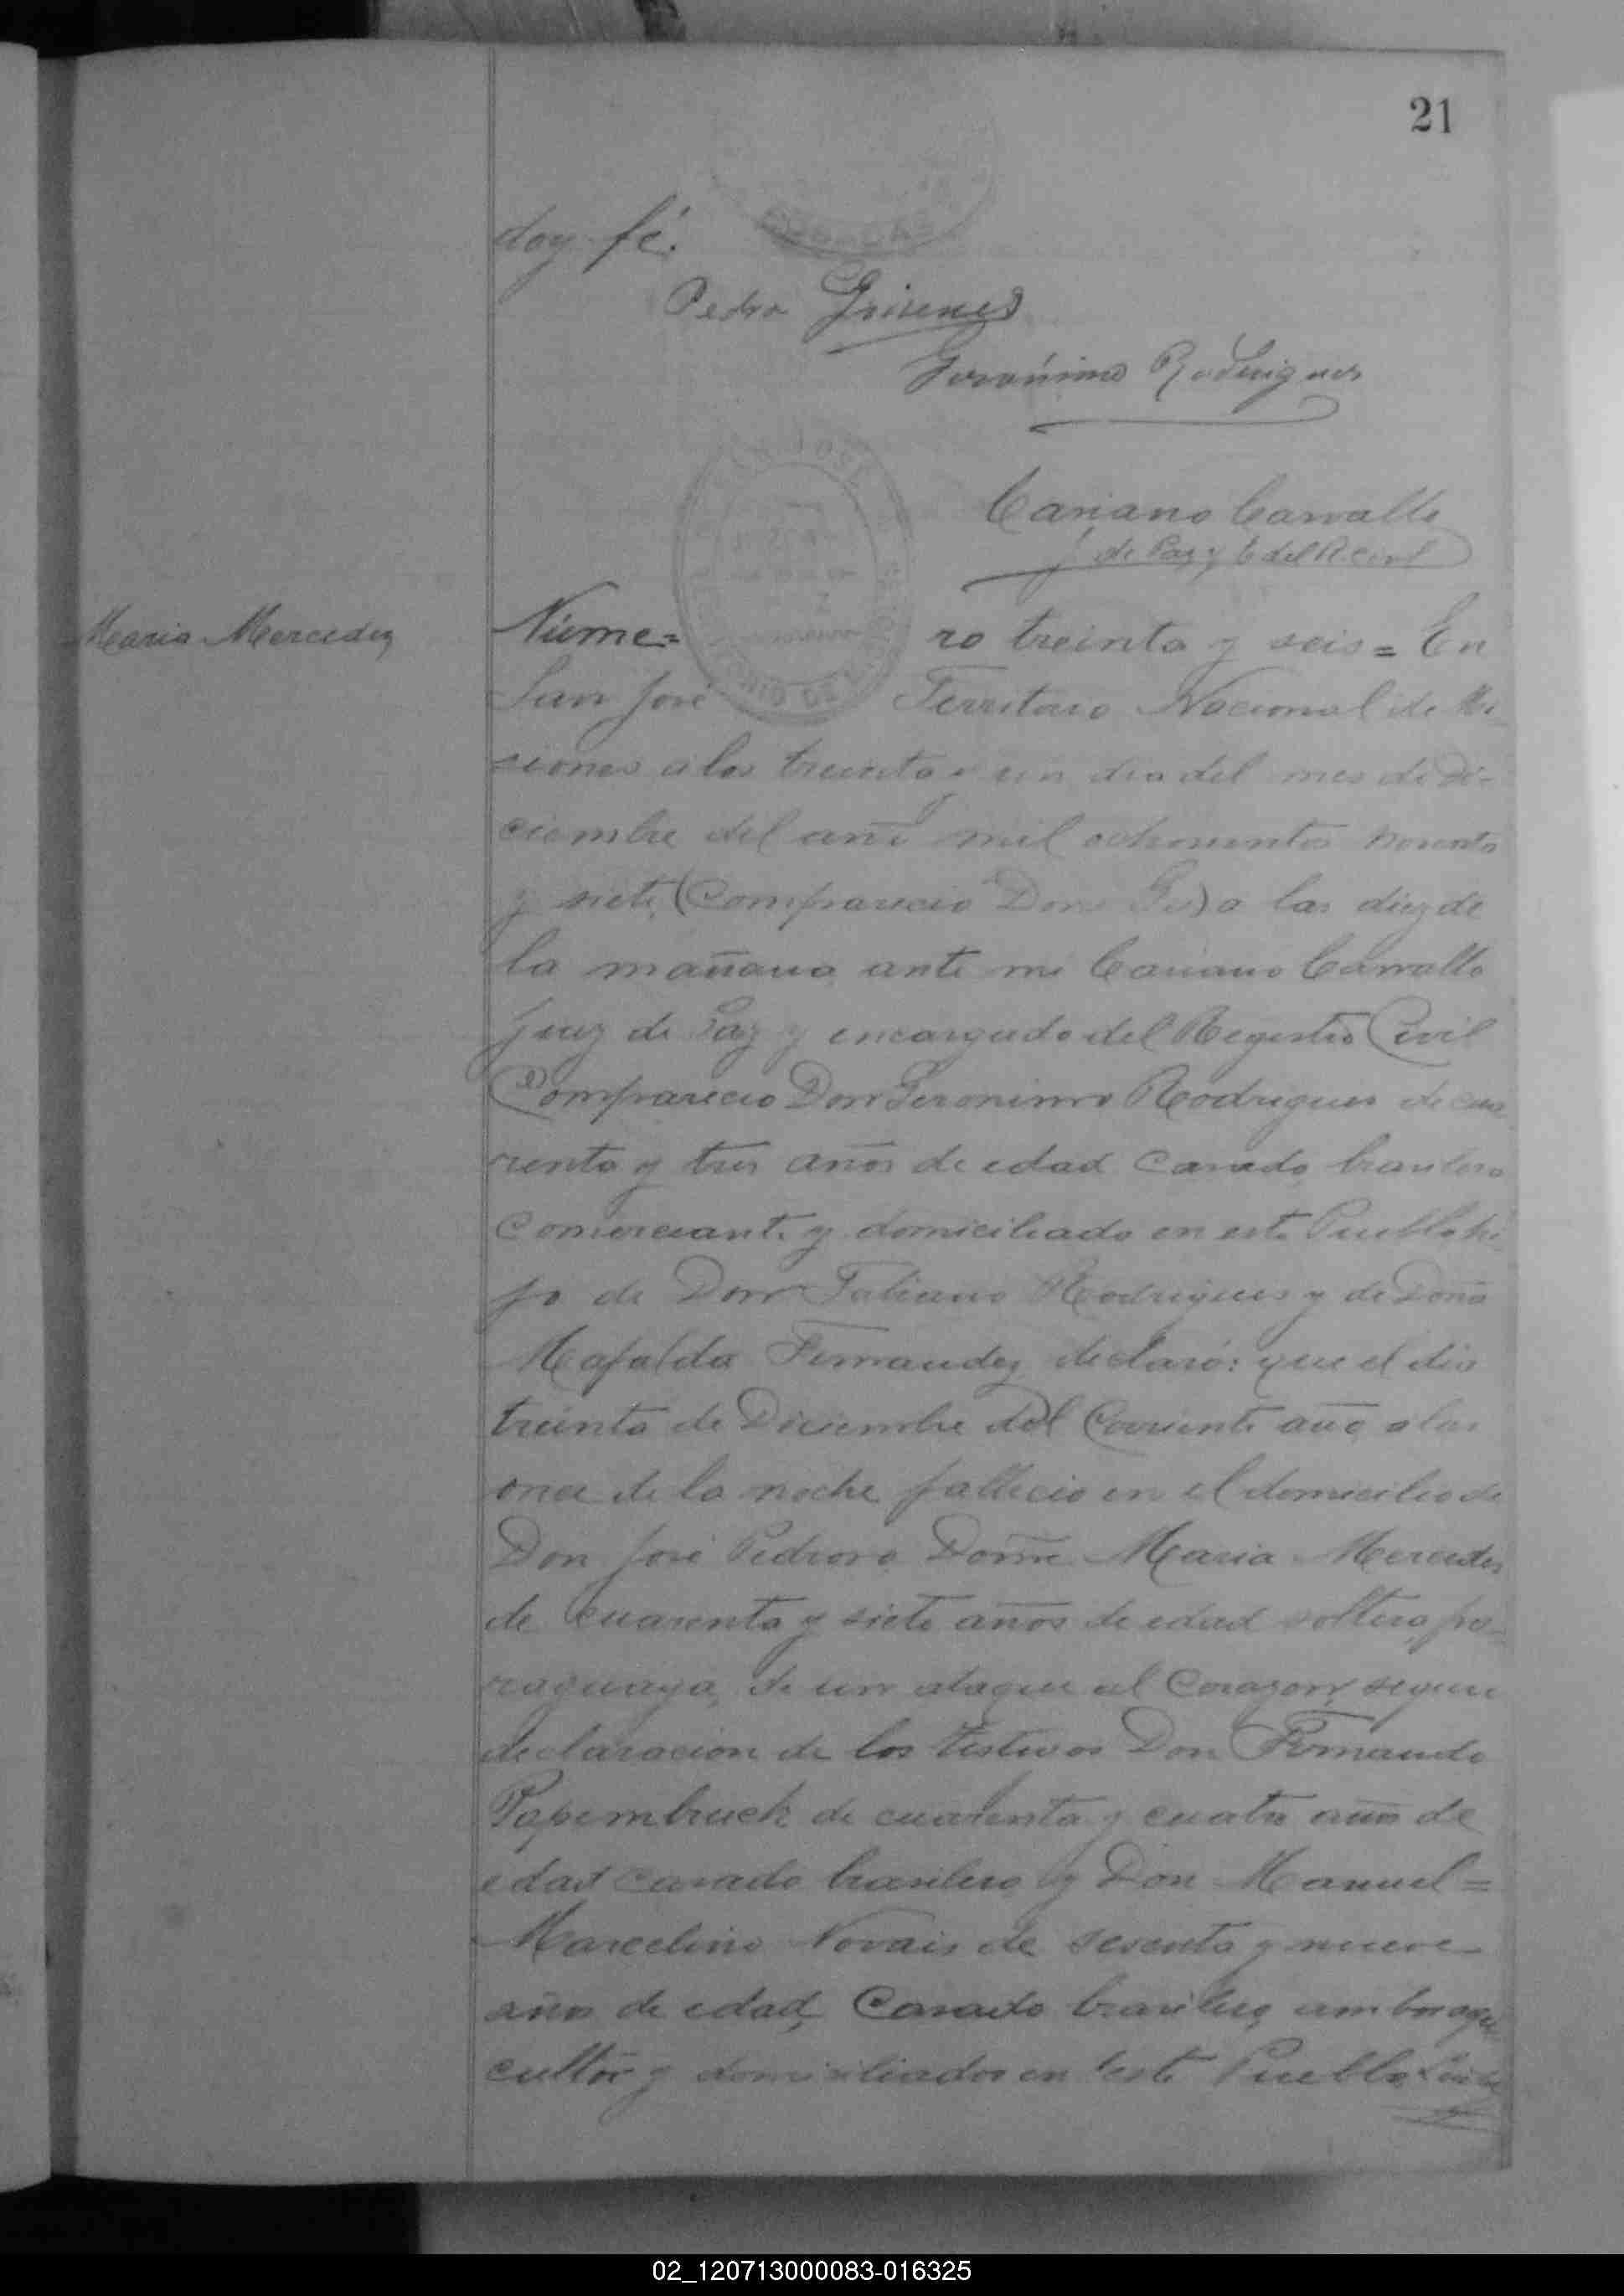 21
doy fé.
Pedro
Gerónimo Rodrigues
Cariano Carvallo
J. de Paz y E. del R. Civil
Maria Mercedes
Núme=
ro treinta y seis = En
San José Territorio Nacional de Mi-
siones a los treinta y un dia del mes de Di-
ciembre del año mil ochocientos noventa
y siete, (Comparecio Don Ge) a las diez de
la mañana, ante mi Cariano Carvallo
Juez de Paz y encargado del Registro Civil
Comparecio Don Geronimo Rodrigues de cua
renta y tres años de edad casado, brasilero
Comerciante y domiciliado en este Pueblo hi-
jo de Don Fabiano Rodrigues y de Doña
Mafalda Fernandez, declaró: que el dia
treinta de Diciembre del Corriente año, a las
once de la noche fallecio en el domicilio de
Don José Pedroso Doña Maria Mercedes
de cuarenta y siete años de edad soltera, pa-
raguaya, de un ataque al Corazon, segun
declaracion de los testigos Don Fernando
Papembruck de cuarenta y cuatro años de
edad casado brasilero y Don Manuel =
Marcelino Novais de sesenta y nueve
años de edad, Casado brasilero, ambos agri
cultor y domiciliados en este Pueblo
02_120713000083-016325